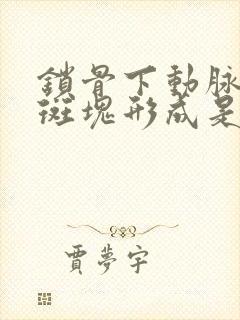 鎖骨下動脉
斑塊形成是
賈夢宇